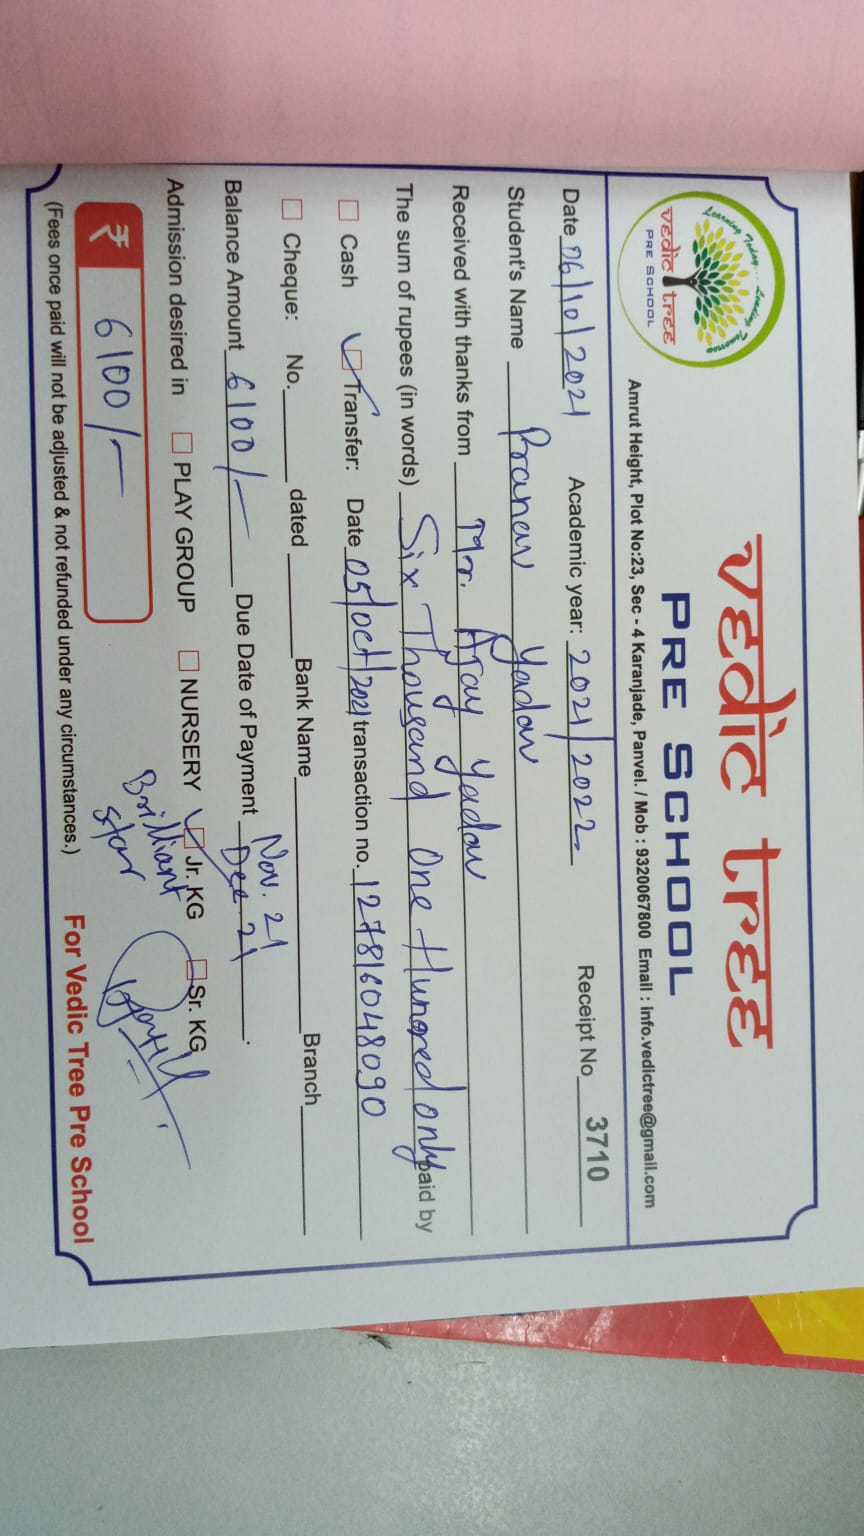 Learning Today... Leading Tomorrow
vedic tree
PRE SCHOOL
vedic tree
PRE SCHOOL
Amrut Height, Plot No:23, Sec - 4 Karanjade, Panvel. / Mob : 9320067800 Email : info.vedictree@gmail.com
Date 06/10/2021 Academic year: 2021/2022 Receipt No 3710
Student's Name Pranav Yadav
Received with thanks from Mr. Ajay Yadav
The sum of rupees (in words) Six Thousand One Hundred only paid by
Cash Transfer: Date 05/Oct/2021 transaction no. 127816048090
Cheque: No. dated Bank Name Branch
Balance Amount 6100/- Due Date of Payment Nov. 21 Dec 21.
Admission desired in PLAY GROUP NURSERY Jr. KG Sr. KG
Brilliant Star
₹ 6100/-
For Vedic Tree Pre School
(Fees once paid will not be adjusted & not refunded under any circumstances.)